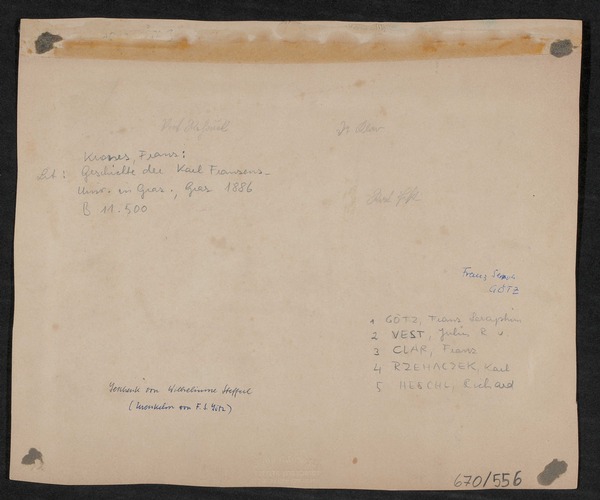 Krones, Franz:
Lit: Geschichte der Karl Franzens-
Univ. in Graz., Graz 1886
B 11.500
Franz Seraph
GÖTZ
1 GÖTZ, Franz Seraphin
2 VEST, Julius R v
3 CLAR, Franz
4 RZEHACZEK, Karl
5 HESCHL, Richard
Geschenk von Wilhelmine
(Urenkelin von F. S. Götz)
670/556